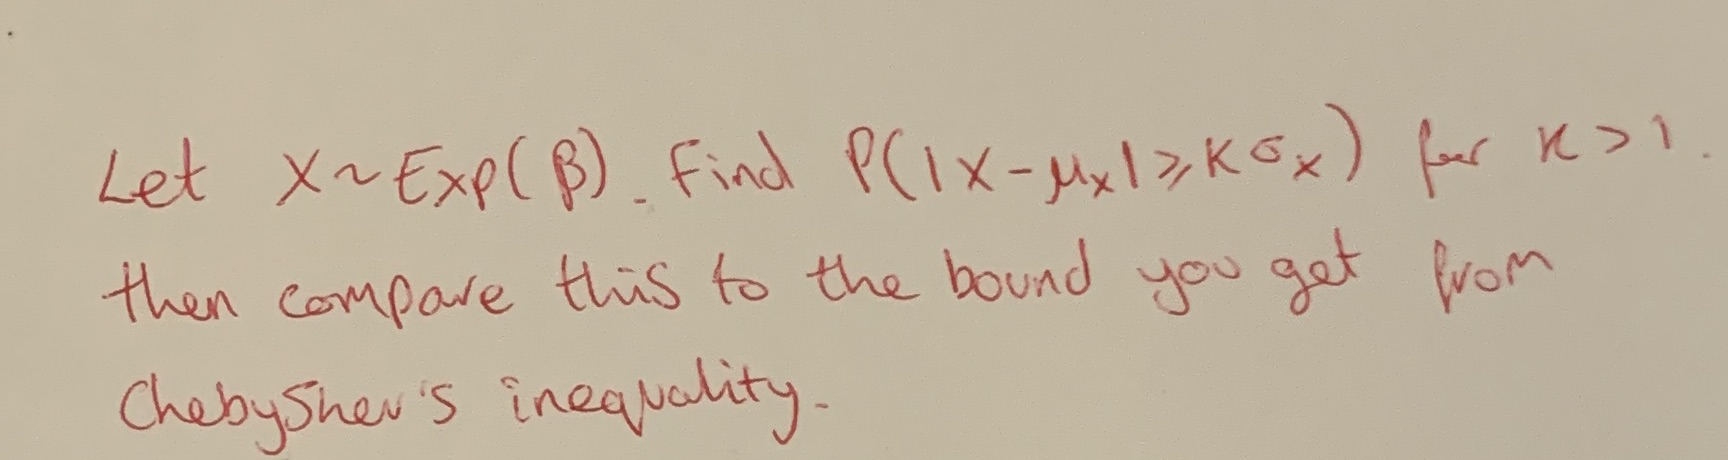 Let X ~ Exp(β). Find P(|X - μₓ| ⩾ Kσₓ) for K > 1.
then compare this to the bound you get from
Chebyshev's inequality.